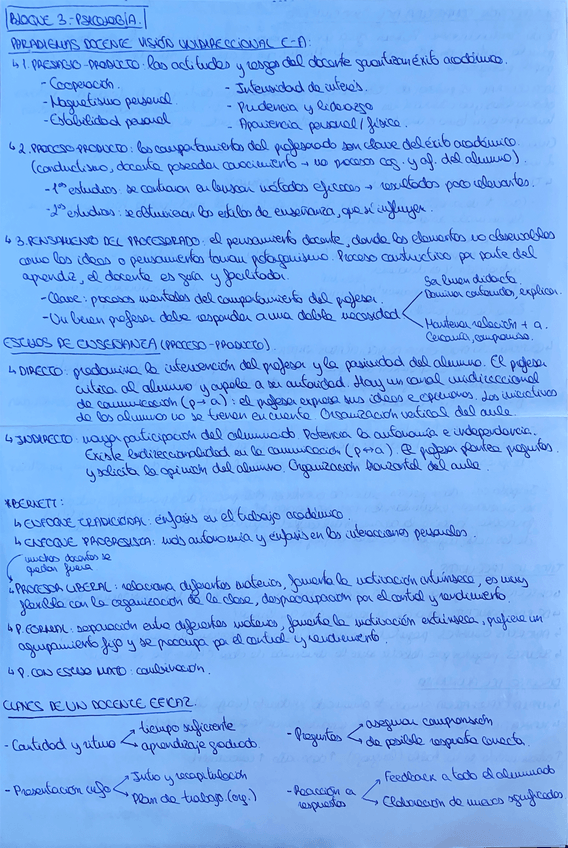 BLOQUE 3.- PSICOLOGÍA.
PARADIGMAS DOCENTE VISIÓN UNIDIRECCIONAL E-A:
↳ 1. PRESAGIO-PRODUCTO: las actitudes y rasgos del docente garantizan éxito académico.
- Cooperación. - Intensidad de interés.
- Magnetismo personal. - Prudencia y liderazgo
- Estabilidad personal - Apariencia personal / física.
↳ 2. PROCESO-PRODUCTO: los comportamientos del profesorado son clave del éxito académico.
(conductismo, docente poseedor conocimiento → no procesos cog. y af. del alumno).
- 1os estudios: se centraron en buscar métodos eficaces → resultados poco relevantes.
- 2os estudios: se obtuvieron los estilos de enseñanza, que sí influyen.
↳ 3. PENSAMIENTO DEL PROFESORADO: el pensamiento docente, donde los elementos no observables
como las ideas o pensamientos toman protagonismo. Proceso constructivo por parte del
aprendiz, el docente es guía y facilitador.
- Clave: procesos mentales del comportamiento del profesor.
- Un buen profesor debe responder a una doble necesidad
Ser buen didacta.
Dominar contenidos, explicar.
Mantener relación + a.
Cercanía, compromiso.
ESTILOS DE ENSEÑANZA (PROCESO-PRODUCTO).
↳ DIRECTO: predomina la intervención del profesor y la pasividad del alumno. El profesor
critica al alumno y apela a su autoridad. Hay un canal unidireccional
de comunicación (p→a): el profesor expresa sus ideas e opiniones. Las iniciativas
de los alumnos no se tienen en cuenta. Organización vertical del aula.
↳ INDIRECTO: mayor participación del alumnado. Potencia la autonomía e independencia.
Existe bidireccionalidad en la comunicación (p↔a). El profesor plantea preguntas
y solicita la opinión del alumno. Organización horizontal del aula.
*BENETT:
↳ ENFOQUE TRADICIONAL: énfasis en el trabajo académico.
↳ ENFOQUE PROGRESISTA: más autonomía y énfasis en las interacciones personales.
muchos docentes se
quedan fuera
↳ PROFESOR LIBERAL: relaciona diferentes materias, fomenta la motivación intrínseca, es muy
flexible con la organización de la clase, despreocupación por el control y rendimiento
↳ P. FORMAL: separación entre diferentes materias, fomenta la motivación extrínseca, prefiere un
agrupamiento fijo y se preocupa por el control y rendimiento.
↳ P. CON ESTILO MIXTO: combinación.
CLAVES DE UN DOCENTE EFICAZ.
- Cantidad y ritmo
tiempo suficiente
aprendizaje graduado.
- Preguntas
asegurar comprensión
de posible respuesta correcta.
- Presentación info
Intro y recapitulación
Plan de trabajo (org.)
- Reacción a respuestas
Feedback a todo el alumnado
Elaboración de nuevos significados.